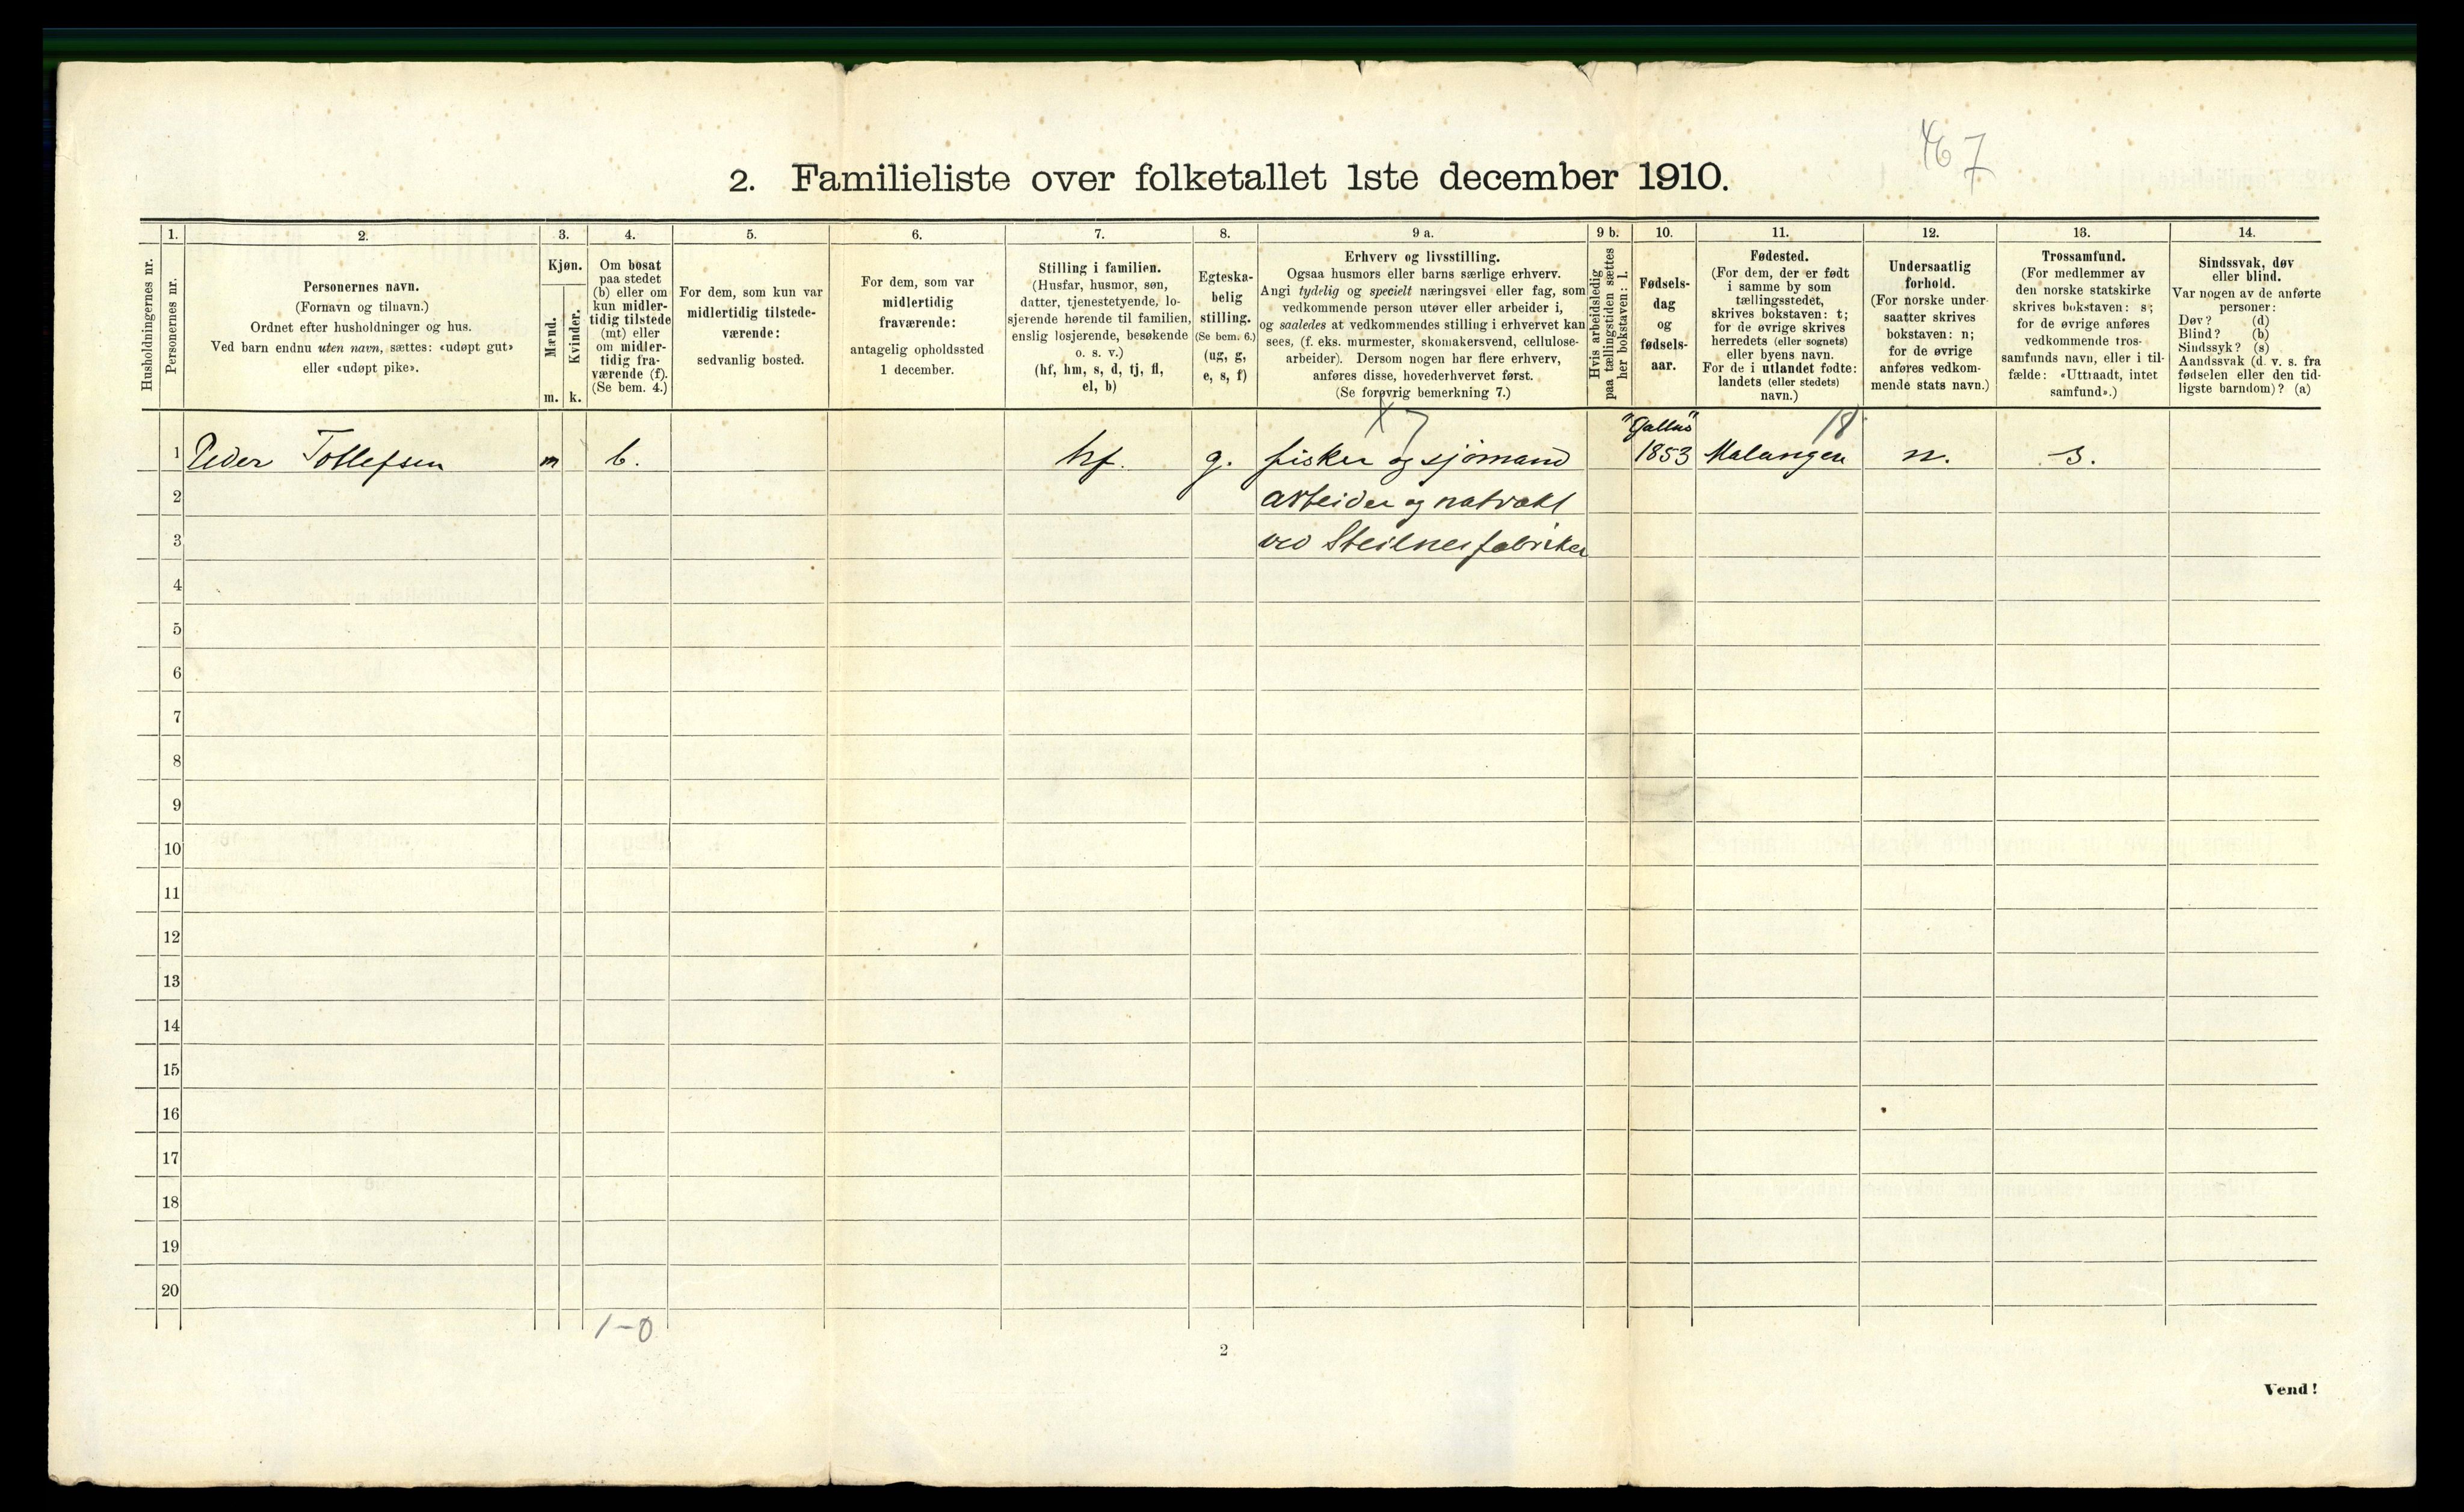 467
2. Familieliste over folketallet 1ste december 1910.
Husholdningernes nr.
1.
Personernes nr.
2.
Personernes navn.
(Fornavn og tilnavn.)
Ordnet efter husholdninger og hus.
Ved barn endnu uten navn, sættes: «udøpt gut»
eller «udøpt pike».
3.
Kjøn.
Mænd.
m.
Kvinder.
k.
4.
Om bosat
paa stedet
(b) eller om
kun midler-
tidig tilstede
(mt) eller
om midler-
tidig fra-
værende (f).
(Se bem. 4.)
5.
For dem, som kun var
midlertidig tilstede-
værende:
sedvanlig bosted.
6.
For dem, som var
midlertidig
fraværende:
antagelig opholdssted
1 december.
7.
Stilling i familien.
(Husfar, husmor, søn,
datter, tjenestetyende, lo-
sjerende hørende til familien,
enslig losjerende, besøkende
o. s. v.)
(hf, hm, s, d, tj, fl,
el, b)
8.
Egteska-
belig
stilling.
(Se bem. 6.)
(ug, g,
e, s, f)
9 a.
Erhverv og livsstilling.
Ogsaa husmors eller barns særlige erhverv.
Angi tydelig og specielt næringsvei eller fag, som
vedkommende person utøver eller arbeider i,
og saaledes at vedkommendes stilling i erhvervet kan
sees, (f. eks. murmester, skomakersvend, cellulose-
arbeider). Dersom nogen har flere erhverv,
anføres disse, hovederhvervet først.
(Se forøvrig bemerkning 7.)
9 b.
Hvis arbeidsledig
paa tællingstiden sættes
her bokstaven: l.
10.
Fødsels-
dag
og
fødsels-
aar.
11.
Fødested.
(For dem, der er født
i samme by som
tællingsstedet,
skrives bokstaven: t;
for de øvrige skrives
herredets (eller sognets)
eller byens navn.
For de i utlandet fødte:
landets (eller stedets)
navn.)
12.
Undersaatlig
forhold.
(For norske under-
saatter skrives
bokstaven: n;
for de øvrige
anføres vedkom-
mende stats navn.)
13.
Trossamfund.
(For medlemmer av
den norske statskirke
skrives bokstaven: s;
for de øvrige anføres
vedkommende tros-
samfunds navn, eller i til-
fælde: «Uttraadt, intet
samfund».)
14.
Sindssvak, døv
eller blind.
Var nogen av de anførte
personer:
Døv? (d)
Blind? (b)
Sindssyk? (s)
Aandssvak (d. v. s. fra
fødselen eller den tid-
ligste barndom)? (a)
X 7
"Gallus" 18
1 Peder Tollefsen m b. hf. g. fisker og sjömand 1853 Malangen n. s.
2 arbeider og natvakt
3 ved Steilnesfabriken
4
5
6
7
8
9
10
11
12
13
14
15
16
17
18
19
20
1-0
2
Vend!